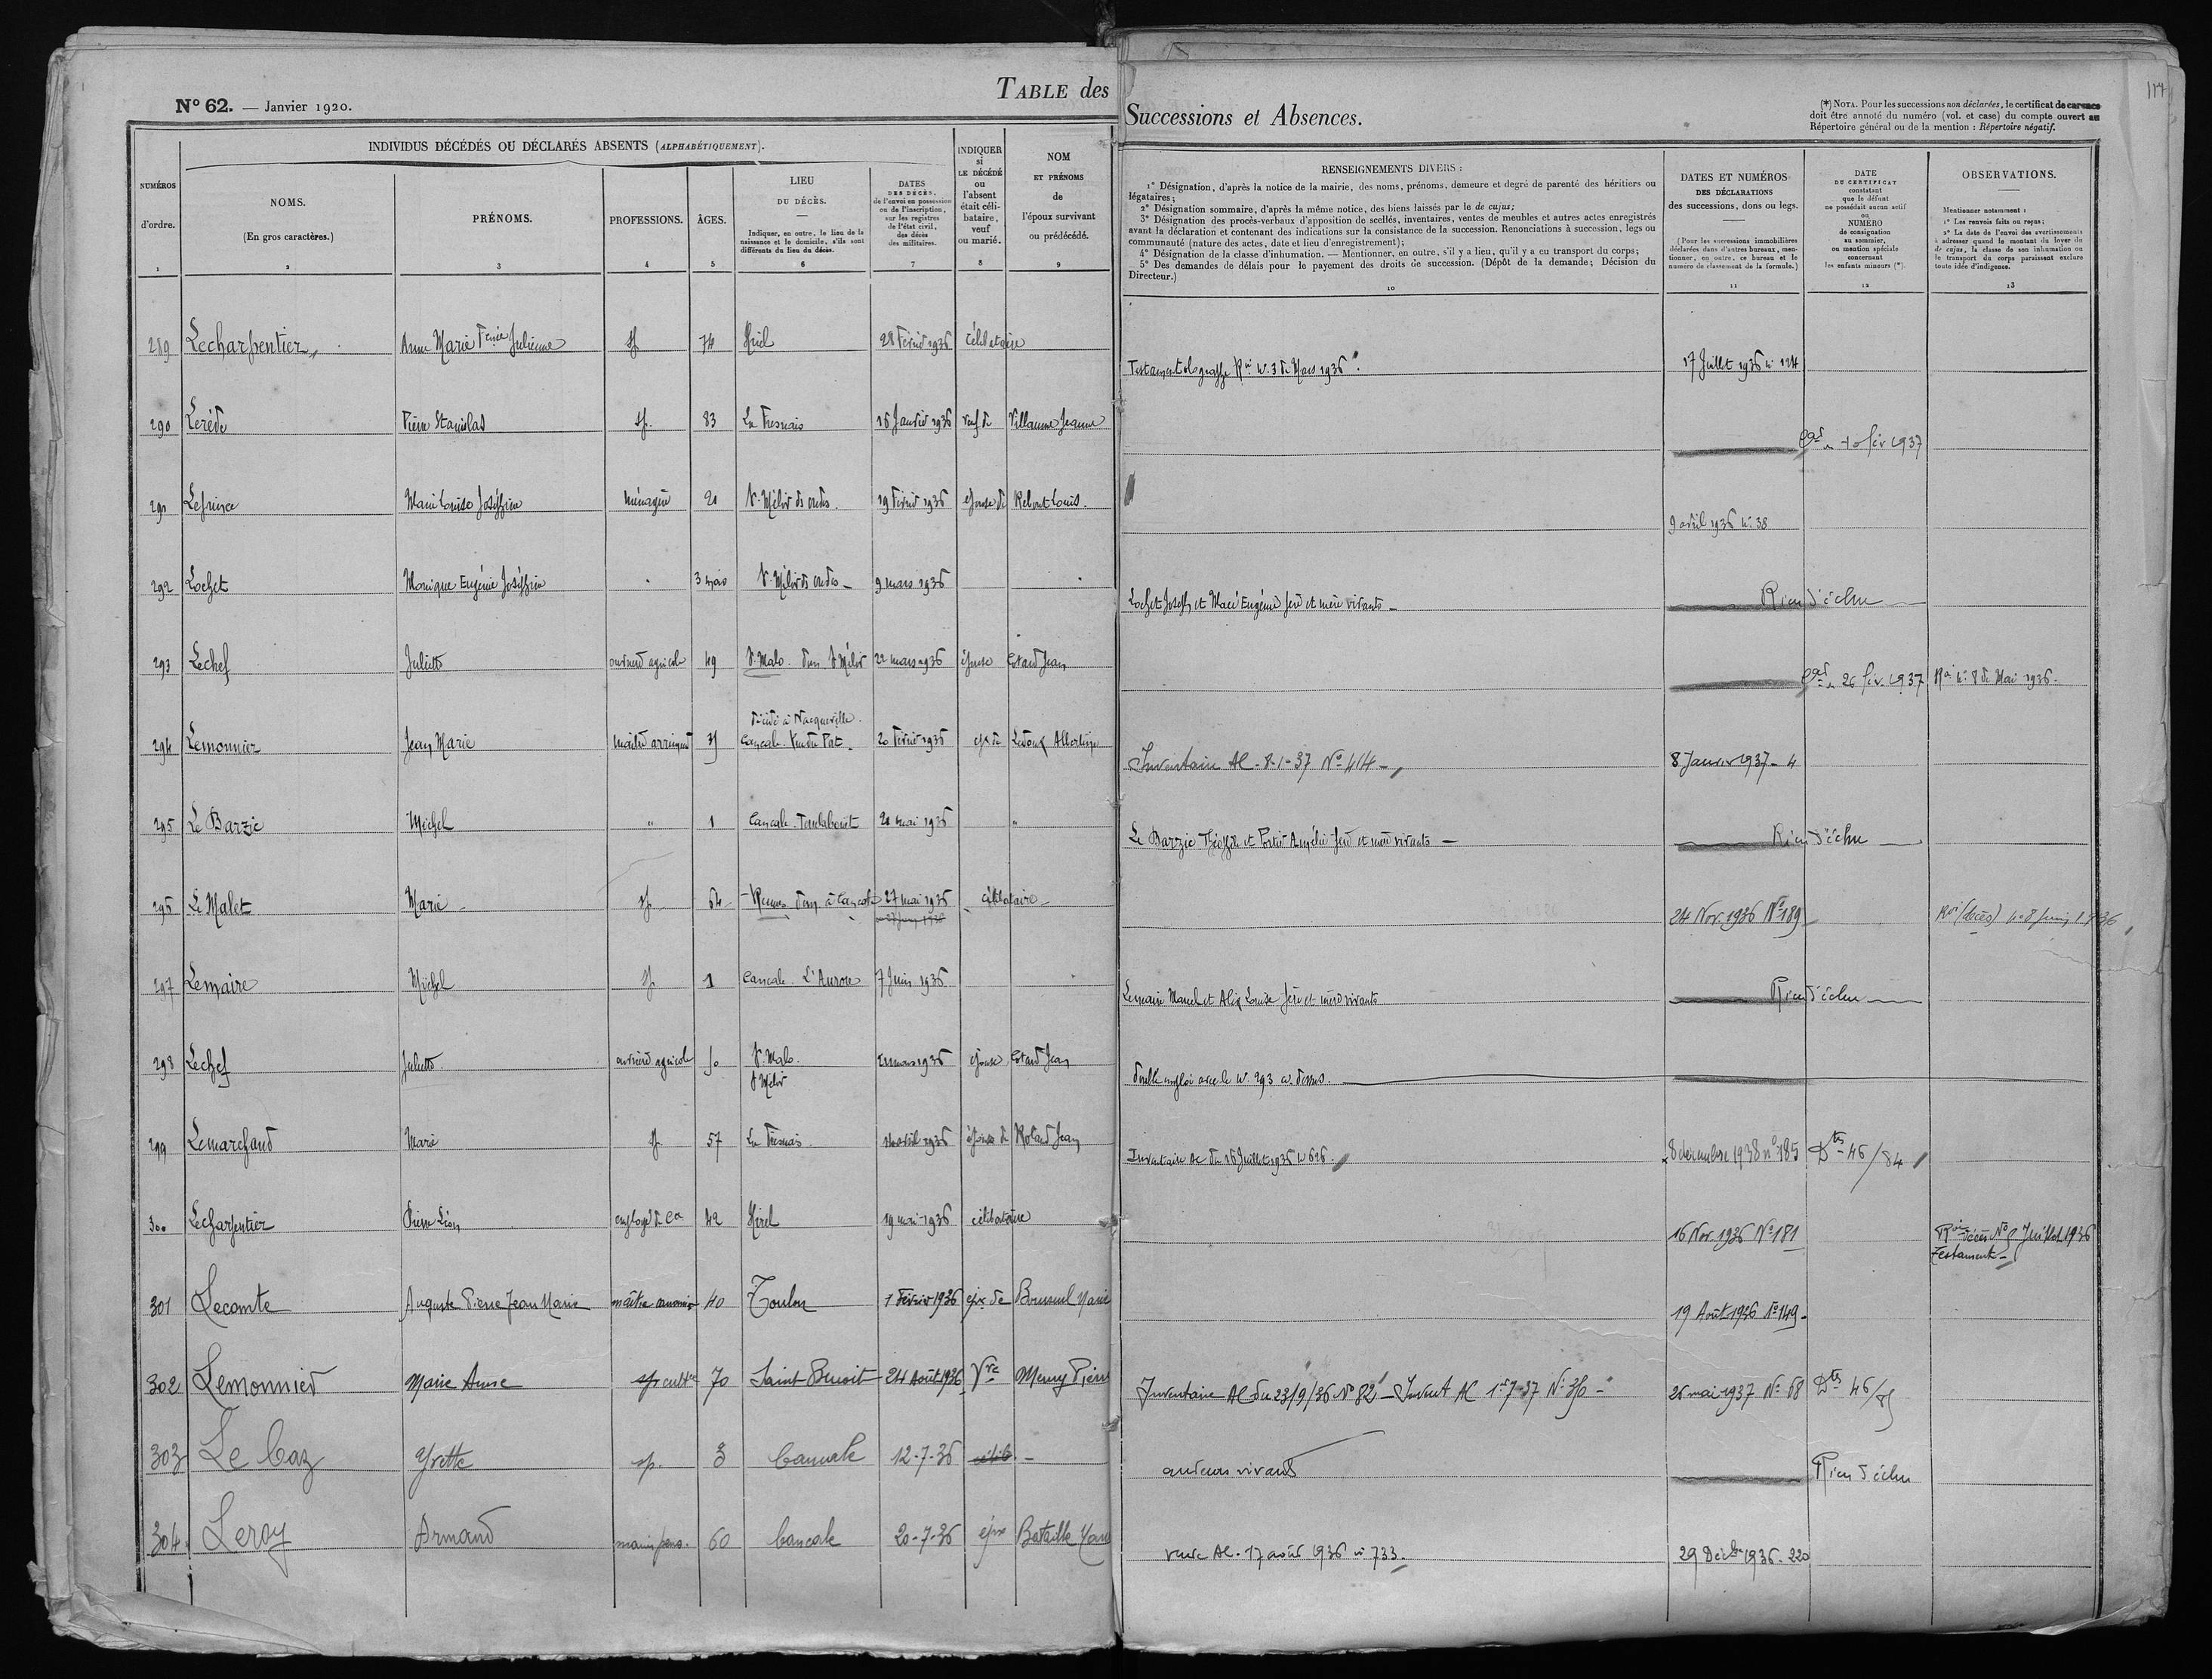 TABLE des
Successions et Absences.
117
N° 62. — Janvier 1920.
(*) NOTA. Pour les successions non déclarées, le certificat de carence
doit être annoté du numéro (vol. et case) du compte ouvert au
Répertoire général ou de la mention : Répertoire négatif.
INDIVIDUS DÉCÉDÉS OU DÉCLARÉS ABSENTS (ALPHABÉTIQUEMENT).
NUMÉROS
d'ordre.
1
NOMS.
(En gros caractères.)
2
PRÉNOMS.
3
PROFESSIONS.
4
ÂGES.
5
LIEU
DU DÉCÈS.
Indiquer, en outre, le lieu de la
naissance et le domicile, s'ils sont
différents du lieu du décès.
6
DATES
DES DÉCÈS,
de l'envoi en possession
ou de l'inscription,
sur les registres
de l'état civil,
des décès
des militaires.
7
INDIQUER
si
LE DÉCÉDÉ
ou
l'absent
était céli-
bataire,
veuf
ou marié.
8
NOM
ET PRÉNOMS
de
l'époux survivant
ou prédécédé.
9
RENSEIGNEMENTS DIVERS :
1° Désignation, d'après la notice de la mairie, des noms, prénoms, demeure et degré de parenté des héritiers ou
légataires;
2° Désignation sommaire, d'après la même notice, des biens laissés par le de cujus;
3° Désignation des procès-verbaux d'apposition de scellés, inventaires, ventes de meubles et autres actes enregistrés
avant la déclaration et contenant des indications sur la consistance de la succession. Renonciations à succession, legs ou
communauté (nature des actes, date et lieu d'enregistrement);
4° Désignation de la classe d'inhumation. — Mentionner, en outre, s'il y a lieu, qu'il y a eu transport du corps;
5° Des demandes de délais pour le payement des droits de succession. (Dépôt de la demande; Décision du
Directeur.)
10
DATES ET NUMÉROS
DES DÉCLARATIONS
des successions, dons ou legs.
(Pour les successions immobilières
déclarées dans d'autres bureaux, men-
tionner, en outre, ce bureau et le
numéro de classement de la formule.)
11
DATE
DU CERTIFICAT
constatant
que le défunt
ne possédait aucun actif
ou
NUMÉRO
de consignation
au sommier,
ou mention spéciale
concernant
les enfants mineurs (*).
12
OBSERVATIONS.
Mentionner notamment :
1° Les renvois faits ou reçus;
2° La date de l'envoi des avertissements
à adresser quand le montant du loyer du
de cujus, la classe de son inhumation ou
le transport du corps paraissent exclure
toute idée d'indigence.
13
289 Lecharpentier Anne Marie Julienne sp 74 Hirel 28 Février 1936 célibataire
Testament olographe Roi N° 3 de Mars 1936. 17 Juillet 1936 n° 124
290 Lerède Pierre Stanislas sp. 83 La Fresnais 16 Janvier 1936 veuf de Villaume Jeanne
10 fév 1937
291 Leprince Marie Louise Joséphine ménagère 21 St Méloir des ondes. 19 Février 1936 épouse de Louis.
9 avril 1936 N° 38
292 Lochet Monique Eugénie Joséphine 3 mois St Méloir des ondes 9 mars 1936
Lochet Joseph et Macé Eugénie père et mère vivants — Rien d'échu
293 Lechef Juliette ouvrière agricole 49 St Malo. dom St Méloir 22 mars 1936 épouse Costard Jean
26 fév. 1937 Roi N° 8 de Mai 1936.
décédé à Nacqueville.
294 Lemonnier Jean Marie maître Cancale. Rue du Port. 20 Février 1936 épx de Ledoux Albertine
Inventaire AC - 8-1-37 N° 414 - 8 Janvier 1937 - 4
295 Le Barzic Michel " 1 Cancale. 21 mai 1936 "
Le Barzic Théophile et Portier Amélie père et mère vivants — Rien d'échu
296 Le Malet Marie sp 64 Rennes dom à Cancale 27 mai 1936 célibataire
24 Nov. 1936 N° 189 Roi (décès) n° 8 juin 1936
297 Lemaire Michel sp 1 Cancale. L'Aurore 7 Juin 1936
Lemaire Marcel et Alix Louise père et mère vivants Rien d'échu
298 Lechef Juliette ouvrière agricole 50 St Malo. 22 mars 1936 épouse Costard Jean
St Méloir
double emploi avec le N° 293 ci-dessus.
299 Lemarchand Marie sp 57 La Fresnais. avril 1936 épouse de Roland Jean
Inventaire AC du 16 Juillet 1936 N° 626. 8 décembre 1938 n° 185 Dts 46/84
300 Lecharpentier Pierre Léon employé de Cce 42 Hirel 19 mai 1936 célibataire
16 Nov. 1936 N° 181 Roi décès N° 8 Juillet 1936
Testament
301 Lecomte Auguste Pierre Jean Marie maître 40 Toulon 1 Février 1936 épx de Marie
19 Août 1936 N° 149.
302 Lemonnier Marie Anne sp cultce 70 Saint Benoit 24 Août 1936 Vve Menuy Pierre
Inventaire AC du 23/9/36 N° 82 — Invent AC 1-7-37 N° 30 - 26 mai 1937 N° 68 Dts 46/85
303 Le Caz Yvette sp. 3 Cancale 12-7-36 célib. —
auteurs vivants Rien d'échu
304 Leroy Armand marin pens. 60 Cancale 20-7-36 épx Bataille
vente AC. 17 août 1936 n° 733. 29 Décbre 1936. 220